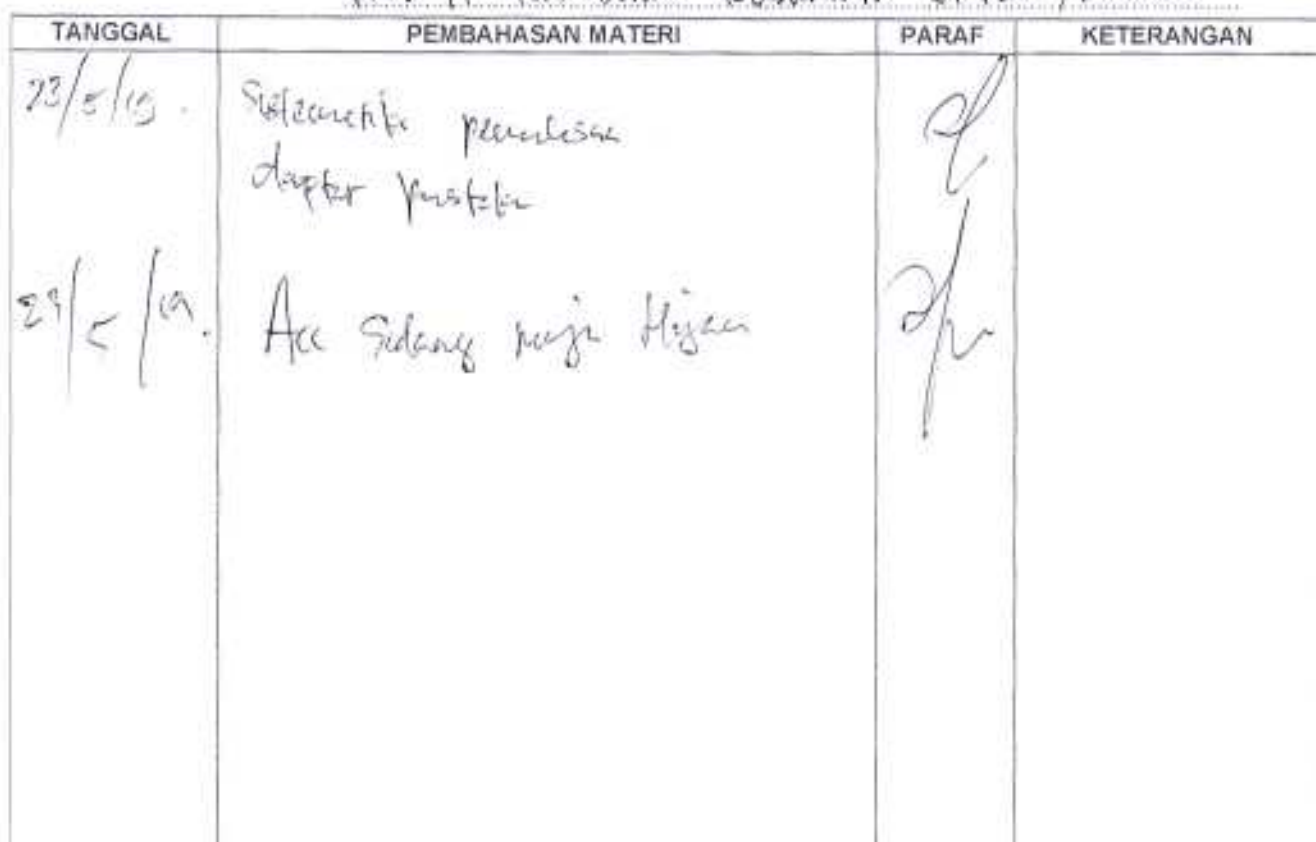 TANGGAL PEMBAHASAN MATERI PARAF KETERANGAN
23/5/19. Sistematika penulisan
daftar pustaka
29/5/19. Acc Sidang meja Hijau